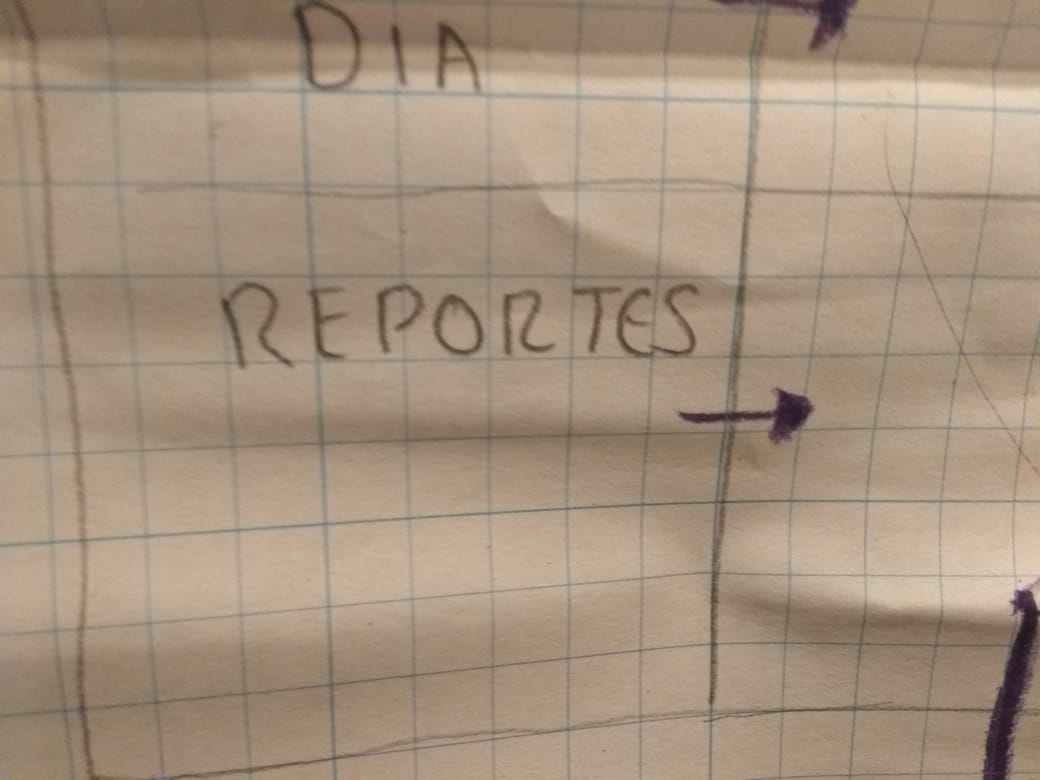 DIA
REPORTES